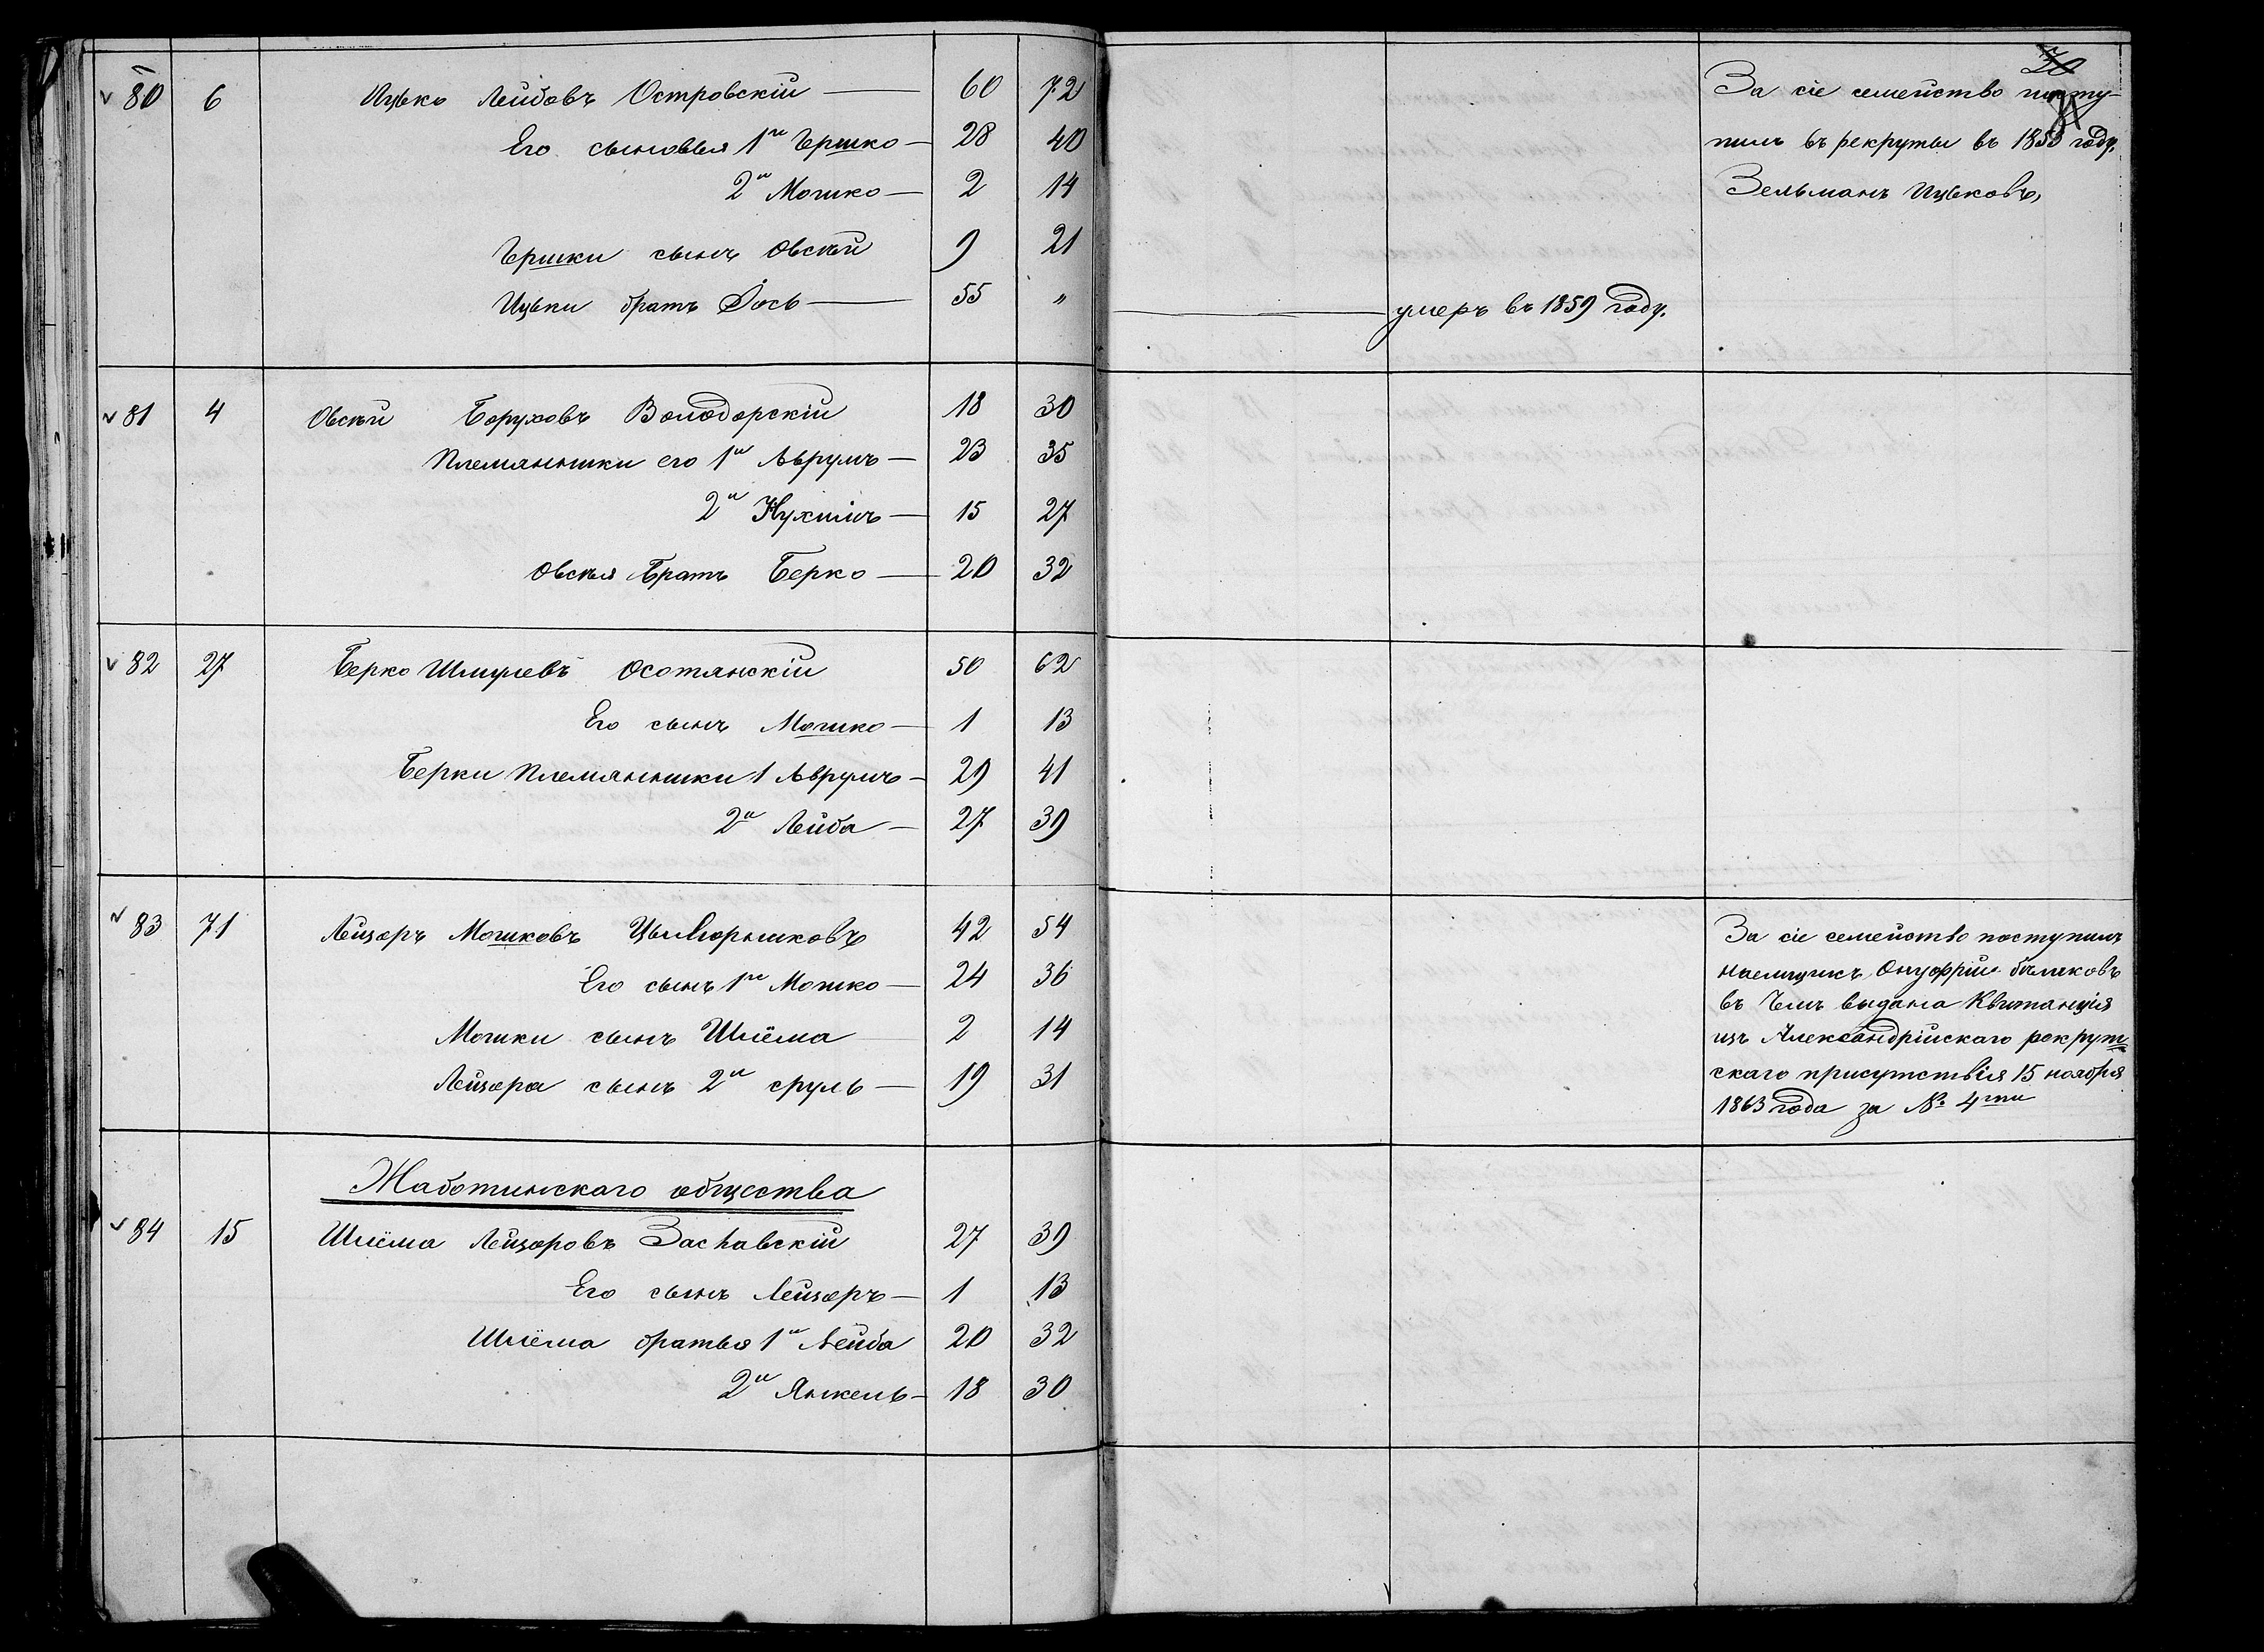 80 6 Ицько Лейбовъ Островскій 60 72
Его сыновья 1й Гершко 28 40
2й Мошко 2 14
Гершки сынъ Овсѣй 9 21
Ицьки братъ Іось 55 "
умеръ въ 1859 году.
За сіе семейство посту-
пилъ въ рекруты въ 1853 году.
Зельманъ Ицьковъ,
81 4 Овсѣй Боруховъ Володорскій 18 30
Племянники его 1й Аврумъ 23 35
2й Нухимъ 15 27
Овсѣя Братъ Берко 20 32
82 27 Берко Шмулевъ Осотянскій 50 62
Его сынъ Мошко 1 13
Берки Племянники 1 Аврумъ 29 41
2й Лейба 27 39
83 71 Лейзеръ Мошковъ 42 54
Его сынъ 1й Мошко 24 36
Мошки сынъ Шлёма 2 14
Лейзера сынъ 2й сруль 19 31
За сіе семейство поступилъ
наемщикъ Онуфрій
въ Чемъ выдана Квитанція
изъ Александрійскаго рекрут
скаго присутствія 15 ноября
1863 года за № 4ми
Жаботинскаго общества
84 15 Шлёма Лейзеровъ Заславскій 27 39
Его сынъ Лейзеръ 1 13
Шлёма братья 1й Лейба 20 32
2й Янкель 18 30